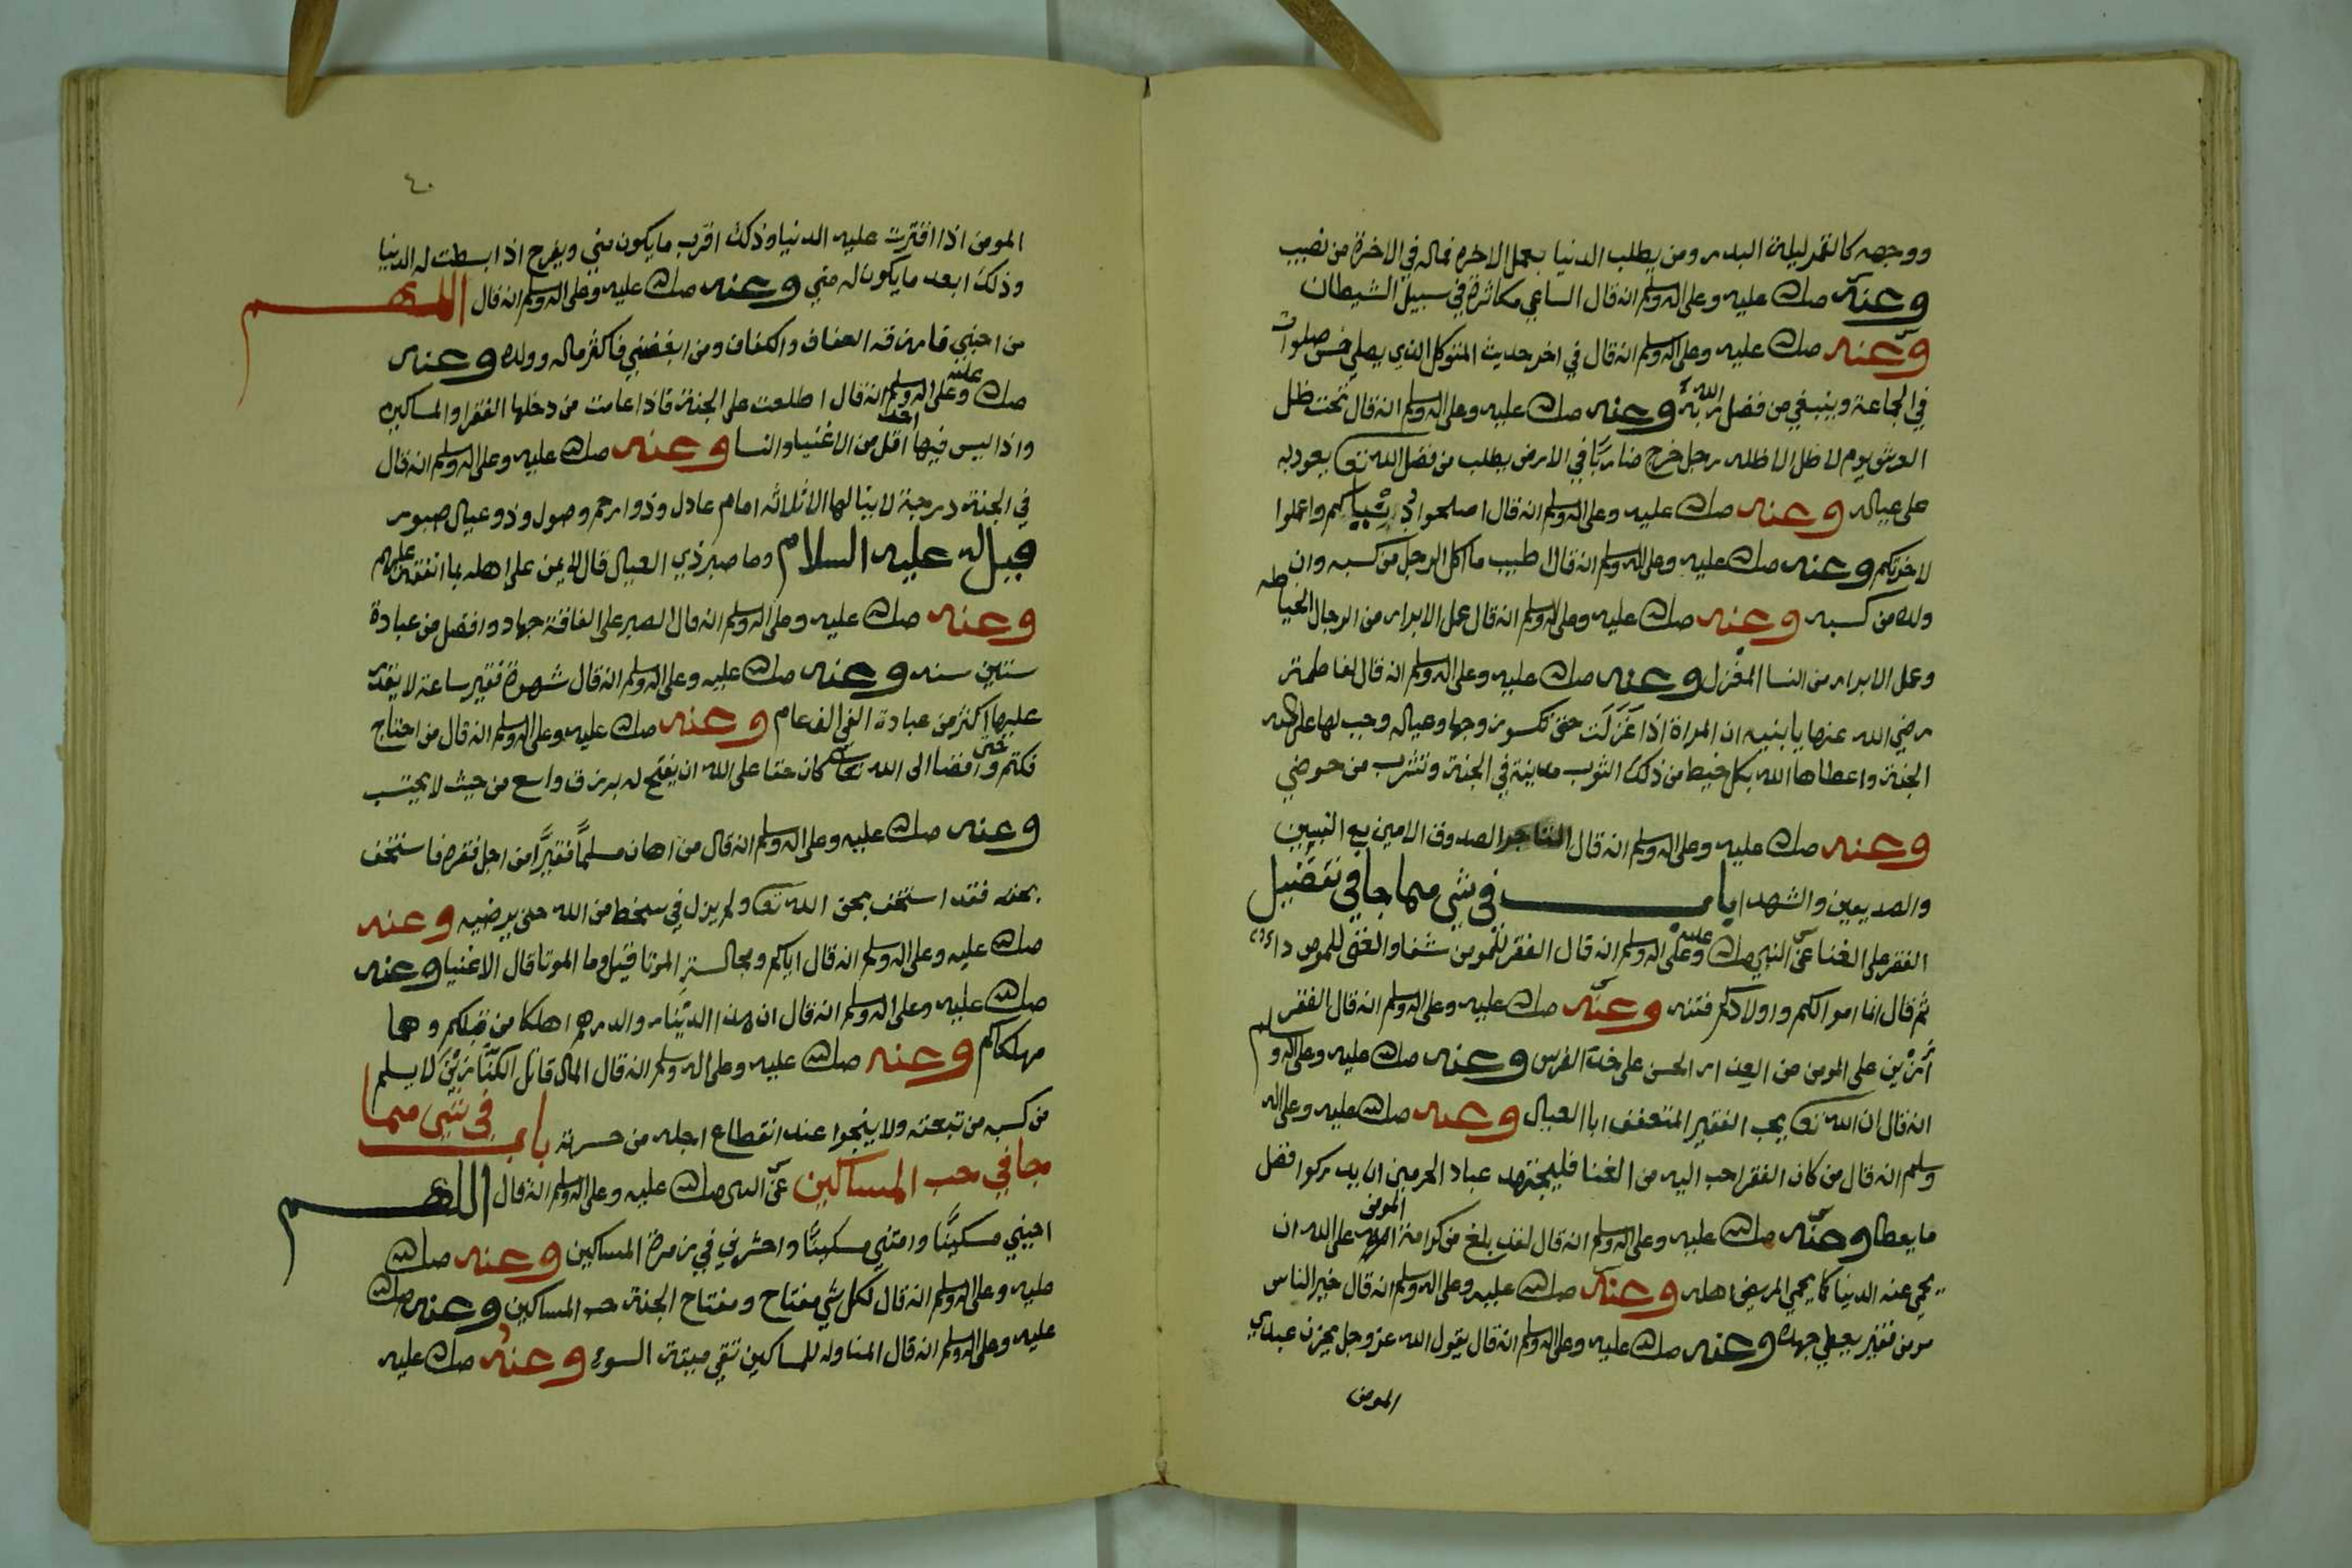 ووجهه كالقمر ليلة البدر ومن يطلب الدنيا بعمل الاخره فماله في الاخرة من نصيب
وعنه صلى الله عليه وعلى اله وسلم انه قال الساعي مكاثرة في سبيل الشيطان
وعنه صلى الله عليه وعلى اله وسلم انه قال في اخر حديث المتوكل الذي يصلي خمس صلوات
في الجماعة ويبتغي من فضل ربه الله وعنه صلى الله عليه وعلى اله وسلم انه قال تحت ظل
العرش يوم لا ظل الا ظله رجل خرج ضاربًا في الارض يطلب من فضل الله تعا يعود به
على عياله وعنه صلى الله عليه وعلى اله وسلم انه قال اصلحوا دنياكم واعملوا
لاخرتكم وعنه صلى الله عليه وعلى اله وسلم انه قال اطيب ما اكل الرجل من كسبه وان
ولده من كسبه وعنه صلى الله عليه وعلى اله وسلم انه قال عمل الابرار من الرجال الخياطه
وعمل الابرار من النسا المغزل وعنه صلى الله عليه وعلى اله وسلم انه قال لفاطمة
رضي الله عنها يا بنيه ان المراة اذا غَزَلَت حتى تكسو زوجها وعياله وجب لها على الله
الجنة واعطاها الله بكل خيط من ذلك الثوب مدينة في الجنة وتشرب من حوضي
وعنه صلى الله عليه وعلى اله وسلم انه قال التاجر الصدوق الامين مع النبيين
والصديقين والشهدا باب في شي مما جا في تفضيل
الفقر على الغنا عن النبي صلى الله عليه وعلى اله وسلم انه قال الفقر للمومن شفا والغنى للمومن داء
ثم قال انما اموالكم واولادكم فتنه وعنه صلى الله عليه وعلى اله وسلم انه قال الفقر
ازين على المومن من العذار الحسن على خد الفرس وعنه صلى الله عليه وعلى اله وسلم
انه قال ان الله تعا يحب الفقير المتعفف ابا العيال وعنه صلى الله عليه وعلى اله
وسلم انه قال من كان الفقر احب اليه من الغنا فليجتهد عباد الحرمين ان يدركوا فضل
ما يعطا وعنه صلى الله عليه وعلى اله وسلم انه قال لقد بلغ من كرامة المومن على الله ان
يحمي عنه الدنيا كما يحمي المريض اهله وعنه صلى الله عليه وعلى اله وسلم انه قال خير الناس
مومن فقير يعطي جهده وعنه صلى الله عليه وعلى اله وسلم انه قال يقول الله عز وجل يحزن عبدي
المومن
٤٠
المومن اذا اقترت عليه الدنيا وذلك اقرب ما يكون مني ويفرح اذا بسطت له الدنيا
وذلك ابعد ما يكون له مني وعنه صلى الله عليه وعلى اله وسلم انه قال اللهم
من احبني فارزقه العفاف والكفاف ومن ابغضني فاكثر ماله وولده وعنه
صلى الله عليه وعلى اله وسلم انه قال اطلعت على الجنة فاذا عامت من دخلها الفقرا والمساكين
واذا ليس فيها احد اقل من الاغنيا والنسا وعنه صلى الله عليه وعلى اله وسلم انه قال
في الجنة درجة لا ينالها الا ثلاثه امام عادل وذوا رحم وصول وذو عيال صبور
قيل له عليه السلام وما صبر ذي العيال قال لا يمن على اهله بما انفقه عليهم
وعنه صلى الله عليه وعلى اله وسلم انه قال الصبر على الفاقة جهاد وافضل من عبادة
ستين سنه وعنه صلى الله عليه وعلى اله وسلم انه قال شهوة فقير ساعة لا يقدر
عليها اكثر من عبادة الغني الف عام وعنه صلى الله عليه وعلى اله وسلم انه قال من احتاج
فكتم حتى وافضا الى الله تعالى كان حقا على الله ان يفتح له برزق واسع من حيث لا يحتسب
وعنه صلى الله عليه وعلى اله وسلم انه قال من اهان مسلمًا فقيرًا من اجل فقره فاستخف
بحقه فقد استخف بحق الله تعا ولم يزل في سخط من الله حتى يرضيه وعنه
صلى الله عليه وعلى اله وسلم انه قال اياكم ومجالسة الموتا قيل وما الموتا قال الاغنيا وعنه
صلى الله عليه وعلى اله وسلم انه قال ان هذا الدينار والدرهم اهلكا من قبلكم وهما
مهلكاكم وعنه صلى الله عليه وعلى اله وسلم انه قال المال قاتل الكنّازين لا يسلم
من كسبه من تبعته ولا ينجوا عند انقطاع اجله من حسرته باب في شي مما
جا في حب المساكين عن النبي صلى الله عليه وعلى اله وسلم انه قال اللهم
احيني مسكينًا وامتني مسكينًا واحشرني في زمرة المساكين وعنه صلى الله
عليه وعلى اله وسلم انه قال لكل شي مفتاح ومفتاح الجنة حب المساكين وعنه صلى الله
عليه وعلى اله وسلم انه قال المناوله للمساكين تقي ميتة السوء وعنه صلى الله عليه